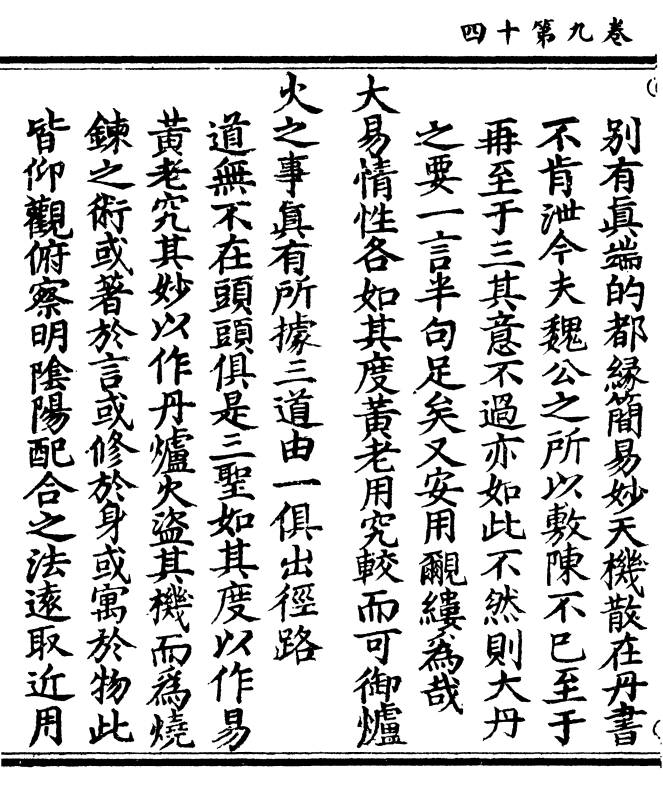 卷九第十四
別有眞端的都緣簡易妙天機散在丹書
不肯泄今夫魏公之所以敷陳不已至于
再至于三其意不過亦如此不然則大丹
之要一言半句足矣又安用覼縷爲哉
大易情性各如其度黃老用究較而可御爐
火之事眞有所據三道由一俱出徑路
道無不在頭頭俱是三聖如其度以作易
黃老究其妙以作丹爐火盜其機而爲燒
鍊之術或著於言或修於身或寓於物此
皆仰觀俯察明陰陽配合之法遠取近用